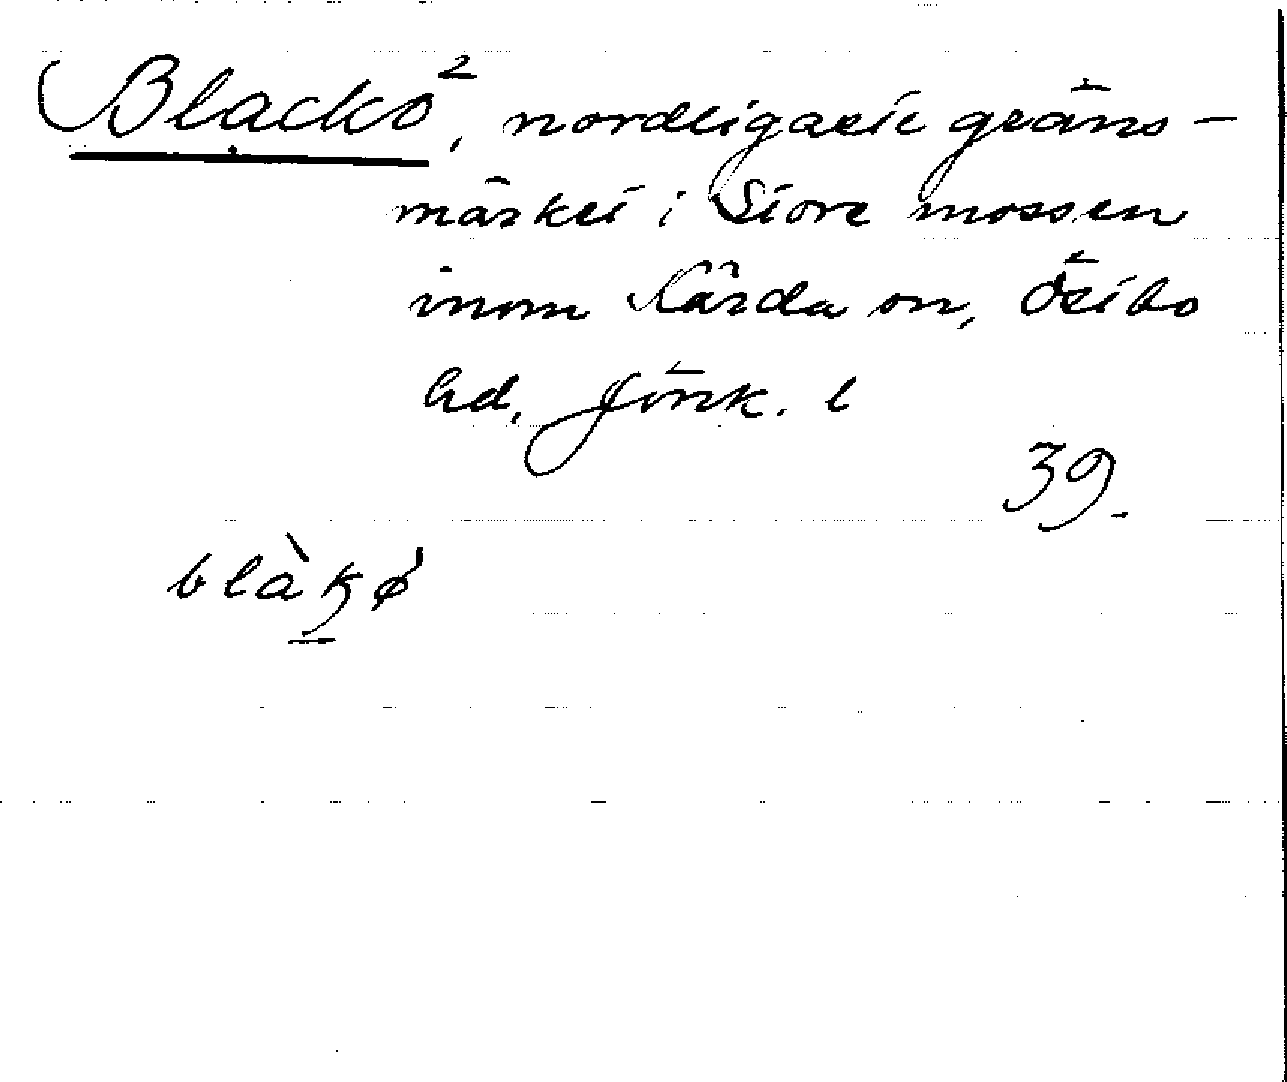 (Blackö, nordligaste gräns-
märket i Store mossen
inom Kärda sn, Östbo
hd, Jönk. l
39.
blàkø